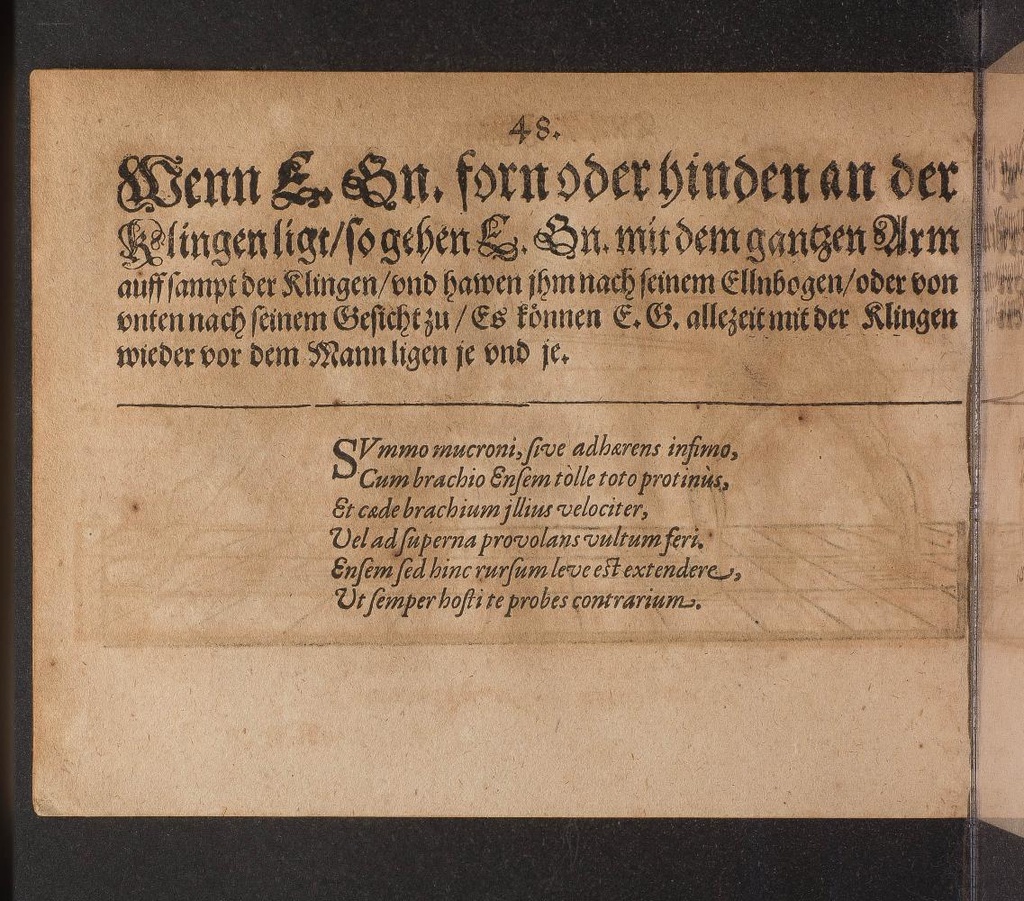 48.
Wenn E. Gn. forn oder hinden an der
Klingen ligt/so gehen E. Gn. mit dem gantzen Arm
auff sampt der Klingen/vnd hawen jhm nach seinem Ellnbogen/oder von
vnten nach seinem Gesicht zu / Es können E. G. allezeit mit der Klingen
wieder vor dem Mann ligen je vnd je.
SVmmo mucroni, sive adhærens infimo,
Cum brachio Ensem tòlle toto protinùs,
Et cæde brachium jllius velociter,
Vel ad superna provolans vultum feri.
Ensem sed hinc rursum leve est extendere,
Ut semper hosti te probes contrarium.